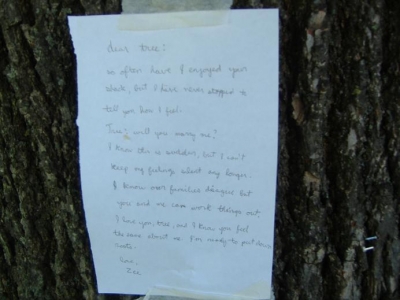 dear tree:
so often have I enjoyed your
shade, but I have never stopped to
tell you how I feel.
Tree, will you marry me?
I know this is sudden, but I can't
keep my feelings silent any longer.
I know our families disagree but
you and me can work things out,
I love you, tree, and I know you feel
the same about me. I'm ready to put down
roots.
love,
Zoe